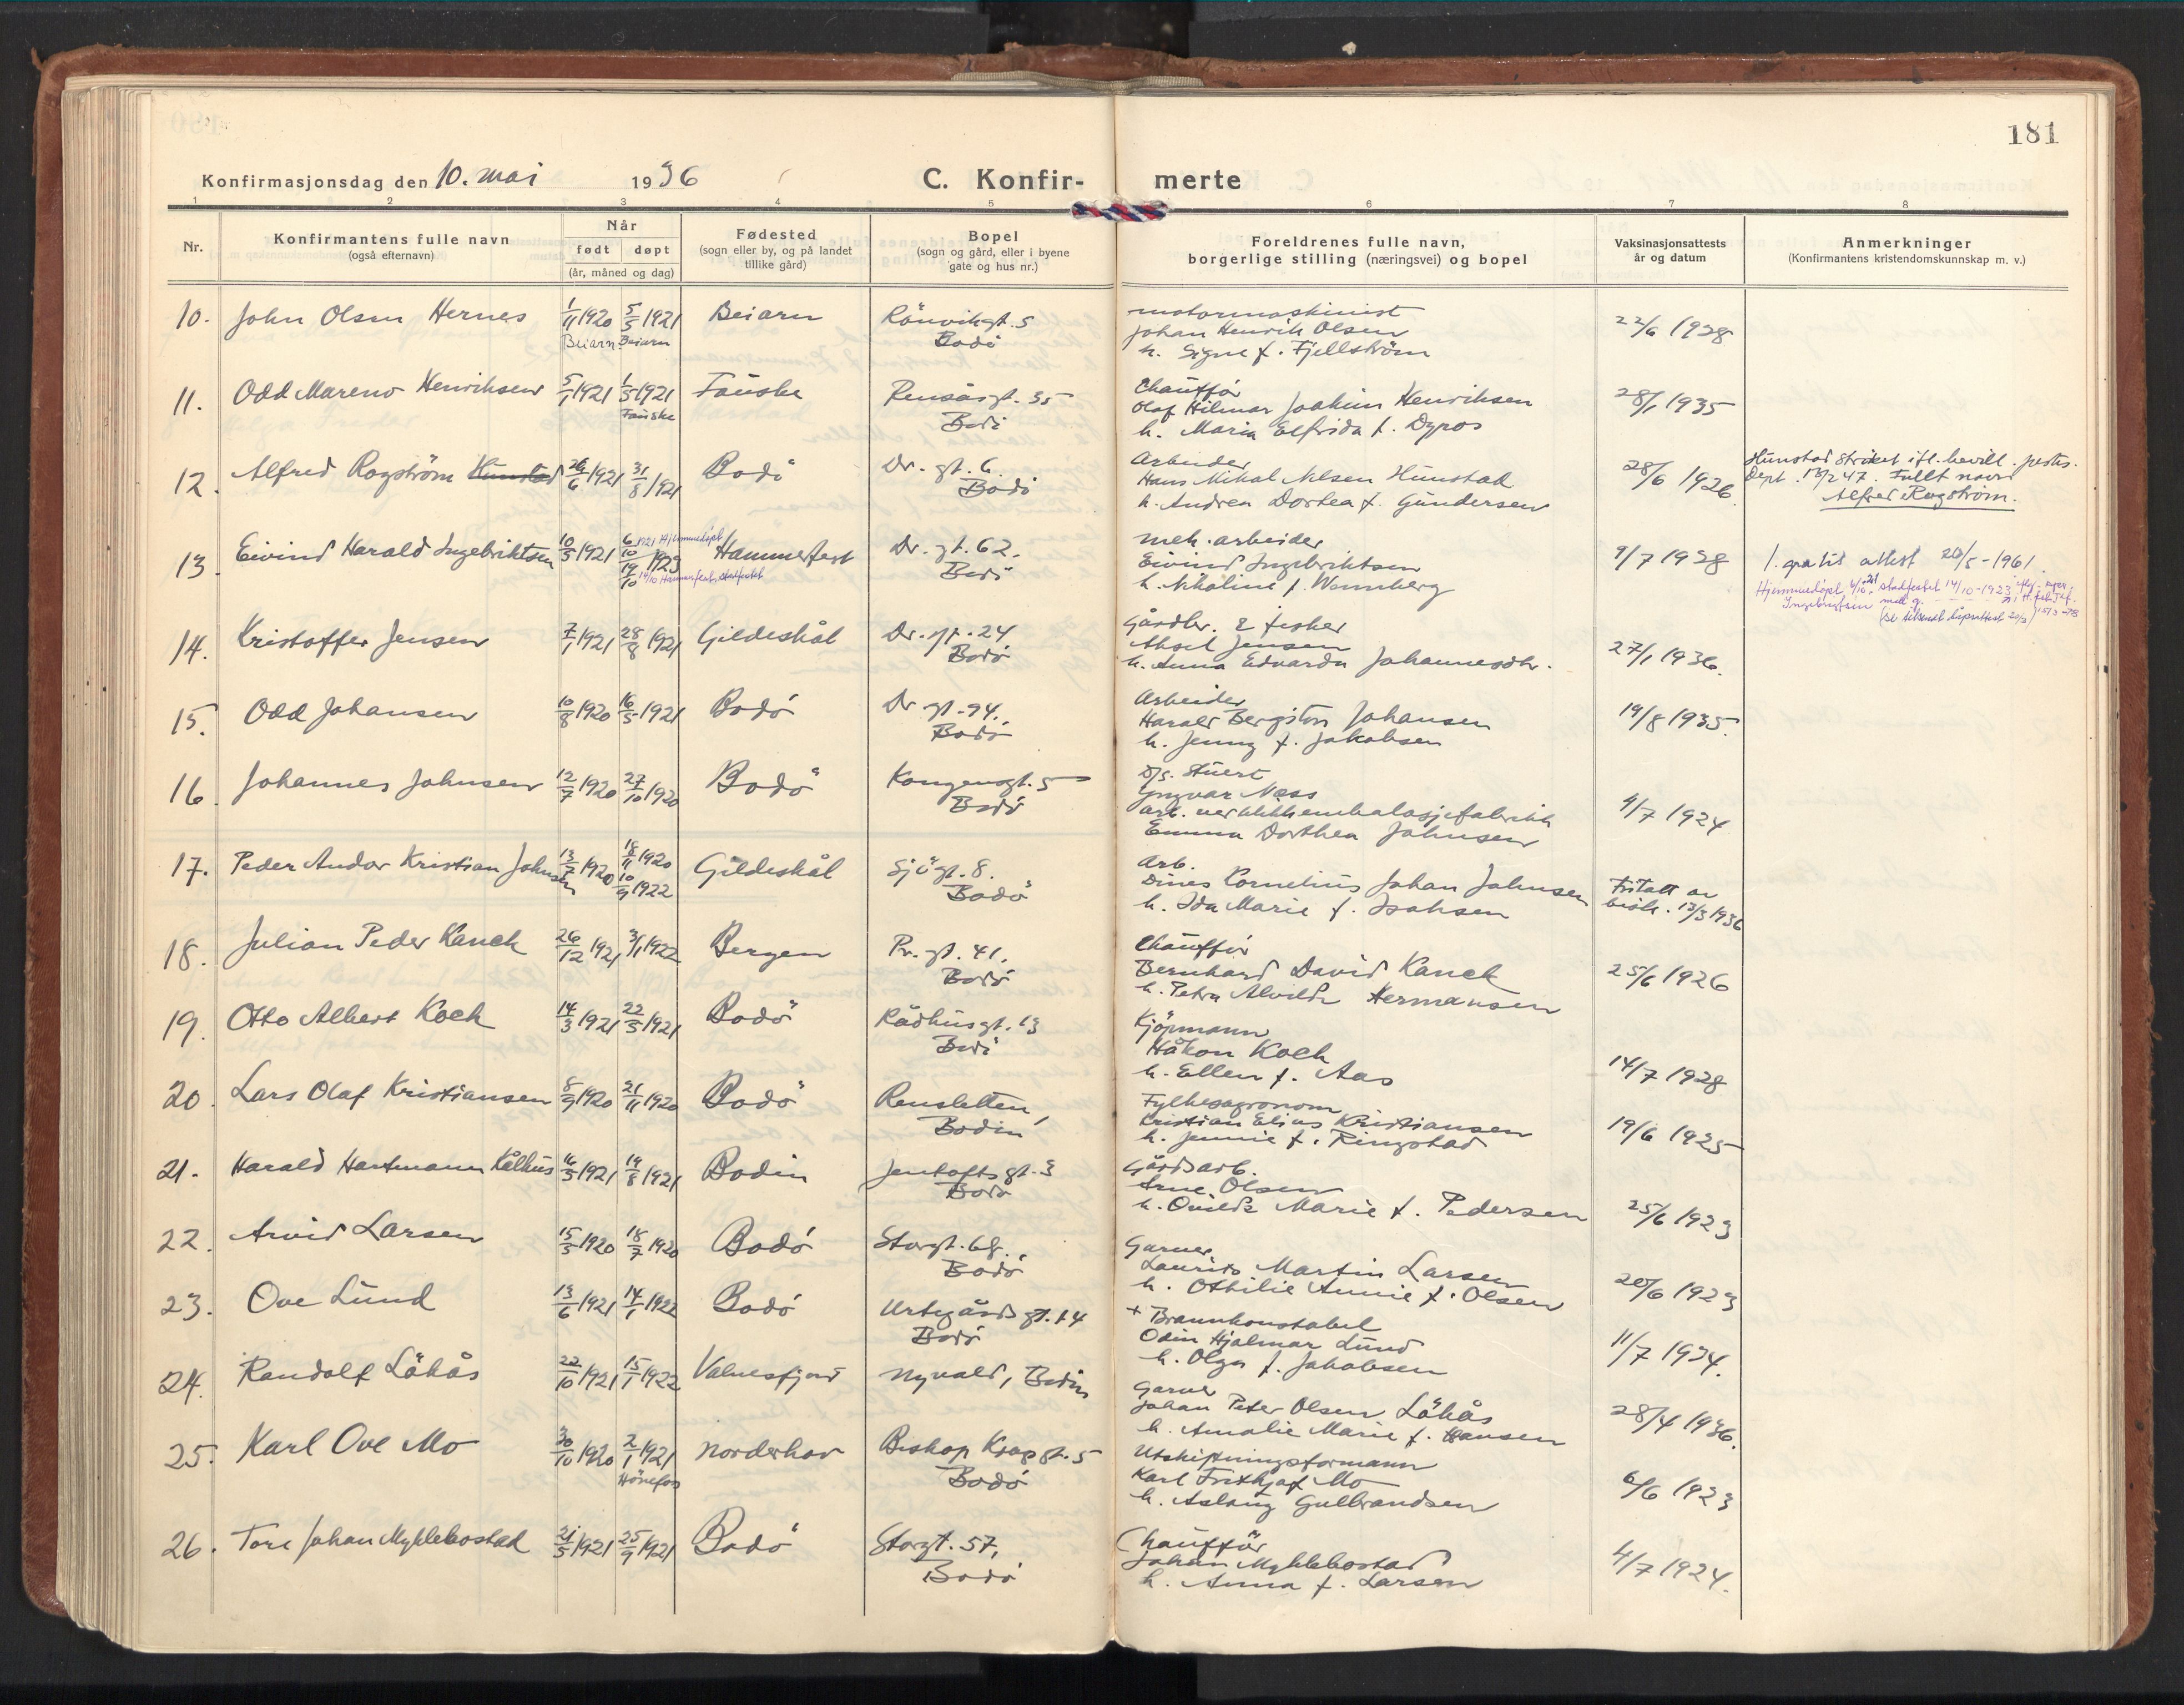 181
Konfirmasjonsdag den 10. mai 1936 C. Konfir- merte
1 2 3 4 5 6 7 8
Nr. Konfirmantens fulle navn (også efternavn) Når født døpt (år, måned og dag) Fødested (sogn eller by, og på landet tillike gård) Bopel (sogn og gård, eller i byene gate og hus nr.) Foreldrenes fulle navn, borgerlige stilling (næringsvei) og bopel Vaksinasjonsattests år og datum Anmerkninger (Konfirmantens kristendomskunnskap m. v.)
10. John Olsen Hernes 1/11 1920 Beiarn 5/5 1921 Beiarn Beiarn Rönvikgt. 5 Bodö
motormaskinist
Johan Henrik Olsen
h. Signe f. Fjellström
22/6 1928
11. Odd Mareno Henriksen 5/1 1921 1/5 1921 Fauske Fauske Rensåsgt. 35 Bodö
Chaufför
Olaf Hilmar Joakim Henriksen
h. Maria Elfrida f. Dyros
28/1 1935
12. Alfred Rogström Hunstad 26/6 1921 31/8 1921 Bodö Dr. gt. 6. Bodö
Arbeider
Hans Mikal Nilsen Hunstad
h. Andrea Dortea f. Gundersen
28/6 1926
Hunstad ströket ifl. bevill. justis.
Dept. 13/2 47. Fullt navn
Alfred Rogström.
13. Eivind Harald Ingebriktsen 10/5 1921 6/10 1921 Hjemmedöpt 14/10 1923 14/10 Hammerfest, stadfestet Hammerfest Dr. gt. 62. Bodö
mek. arbeider
Eivind Ingebriktsen
h. Nikoline f. Wennberg
9/7 1928
1. gratis attest 20/5-1961
Hjemmedöpt 6/10-21 stadfestet 14/10-1923
14. Kristoffer Jensen 7/1 1921 28/8 1921 Gildeskål Dr. gt. 24 Bodö
Gårdbr. & fisker
Aksel Jensen
h. Anna Edvarda Johannesdtr.
27/1 1936.
15. Odd Johansen 10/8 1920 16/5 1921 Bodö Dr. gt. 94. Bodö
Arbeider
Harald Bergiton Johansen
h. Jenny f. Jakobsen
19/8 1935.
16. Johannes Johnsen 12/7 1920 27/10 1920 Bodö Kongensgt. 5 Bodö
D/s. Stuert
Yngvar Næss
arb. ved blikkemballasjefabrikk
Emma Dorthea Johnsen
4/7 1924
17. Peder Andor Kristian Johnsen 13/7 1920 18/11 1920 10/9 1922 Gildeskål Sjögt. 8. Bodö
Arb.
Dines Cornelius Johan Johnsen
h. Ida Marie f. Isaksen
Fritatt av
bisk. 13/3 1936
18. Julian Peder Kanck 26/12 1921 3/1 1922 Bergen Pr. gt. 41. Bodö
Chaufför
Bernhard David Kanck
h. Petra Alvilde Hermansen
25/6 1926
19. Otto Albert Koch 14/3 1921 22/5 1921 Bodö Rådhusgt. 13 Bodö
Kjöpmann
Håkon Koch
h. Ellen f. Aas
14/7 1928
20. Lars Olaf Kristiansen 8/9 1920 21/11 1920 Bodö Rensletten, Bodin
Fylkesagronom
Kristian Elias Kristiansen
h. Jennie f. Ringstad
19/6 1925
21. Harald Hartmann Kålhus 16/5 1921 19/8 1921 Bodin Jentoftsgt. 3 Bodö
Gårdsarb.
Arne Olsen
h. Ovilde Marie f. Pedersen
25/6 1923
22. Arvid Larsen 15/5 1920 18/7 1920 Bodö Storgt. 68. Bodö
Garver
Laurits Martin Larsen
h. Othilie Annie f. Olsen
20/6 1923
23. Ove Lund 13/6 1921 14/1 1922 Bodö Urtegårdsgt. 14 Bodö
+ Brannkonstabel
Odin Hjalmar Lund
h. Olga f. Jakobsen
11/7 1934.
24. Randolf Lökås 22/10 1921 15/1 1922 Valnesfjord Nyvald, Bodin
Garver
Johan Peter Olsen Lökås
h. Amalie Marie f. Hansen
28/4 1936.
25. Karl Ove Mo 30/10 1920 2/1 1921 Hönefos Norderhov Biskop Krogsgt. 5 Bodö
Utskiftningsformann
Karl Frithjof Mo
h. Aslaug Gulbrandsen
6/6 1923
26. Tore Johan Myklebostad 21/5 1921 25/9 1921 Bodö Storgt. 57, Bodö
Chaufför
Johan Myklebostad
h. Anna f. Larsen
4/7 1924.